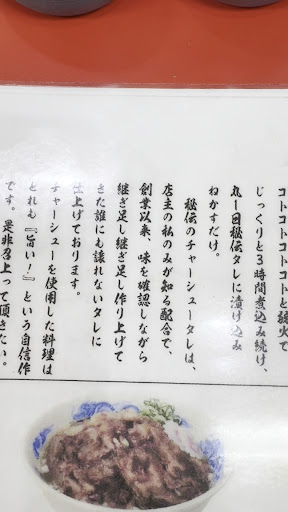 コトコトコトコトと弱火で
じっくりと3時間煮込み続け、
丸一日秘伝タレに漬け込み
ねかすだけ。
秘伝のチャーシュータレは、
店主の私のみが知る配合で、
創業以来、味を確認しながら
継ぎ足し継ぎ足し作り上げて
きた誰にも譲れないタレに
仕上げております。
チャーシューを使用した料理は
どれも『旨い!』という自信作
です。是非召上って頂きたい。